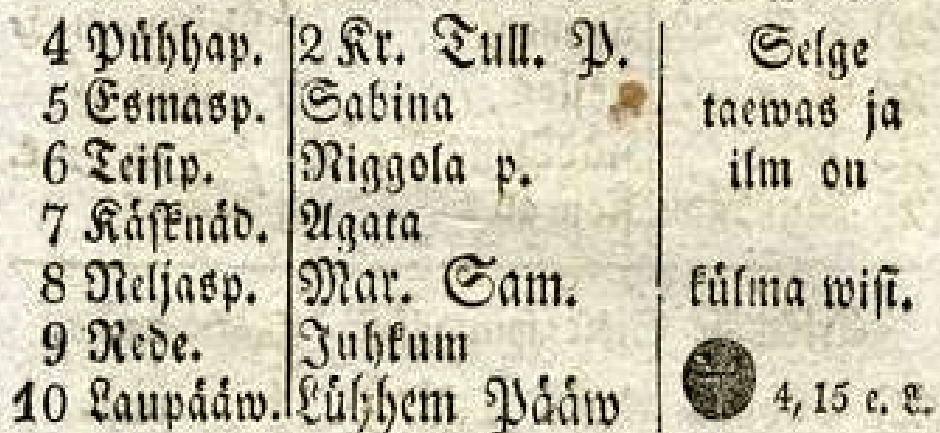 4 Pühhap. 2 Kr. Tull. P. Selge
5 Esmasp. Sabina taewas ja
6 Teisip. Niggola p. ilm on
7 Käsknäd. Agata
8 Neljasp. Mar. Sam. külma wist.
9 Rede. Juhkum
10 Laupääw. Lühhem Pääw 4, 15 e. L.